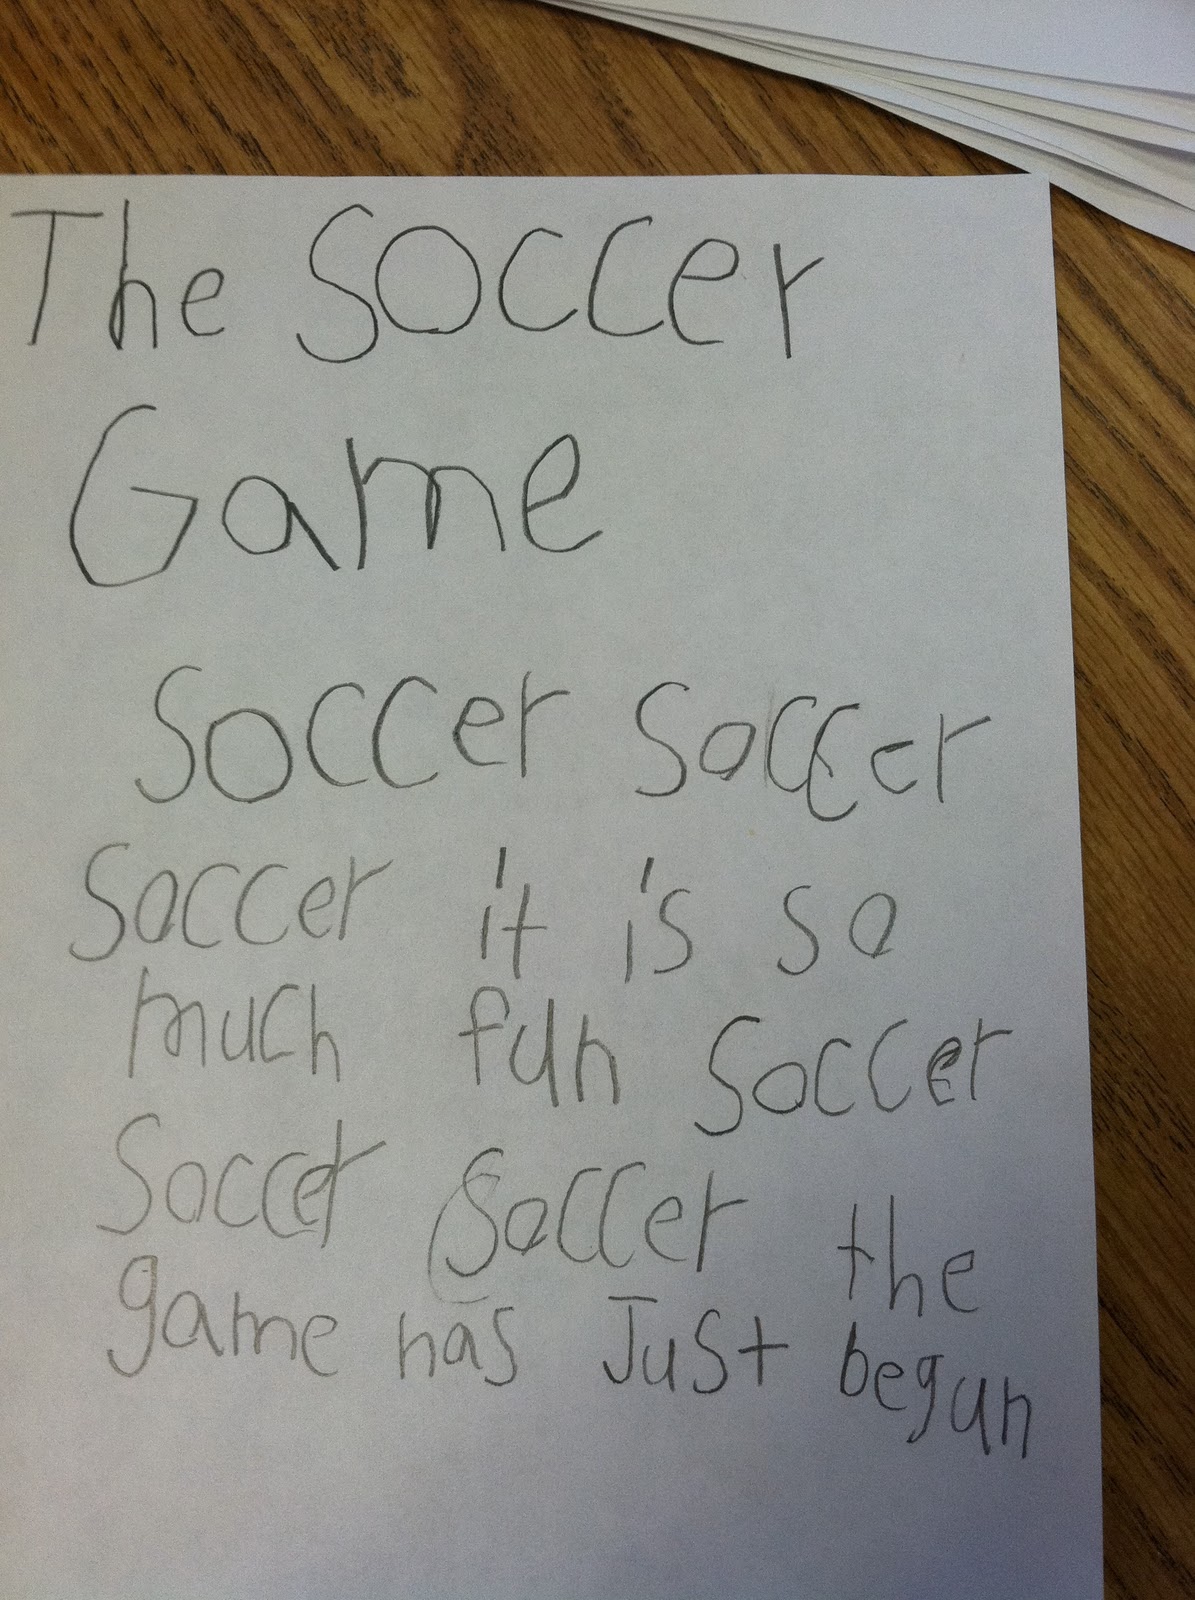 The Soccer
Game
Soccer Soccer
Soccer it is so
much fun Soccer
Soccer Soccer the
game has Just begun